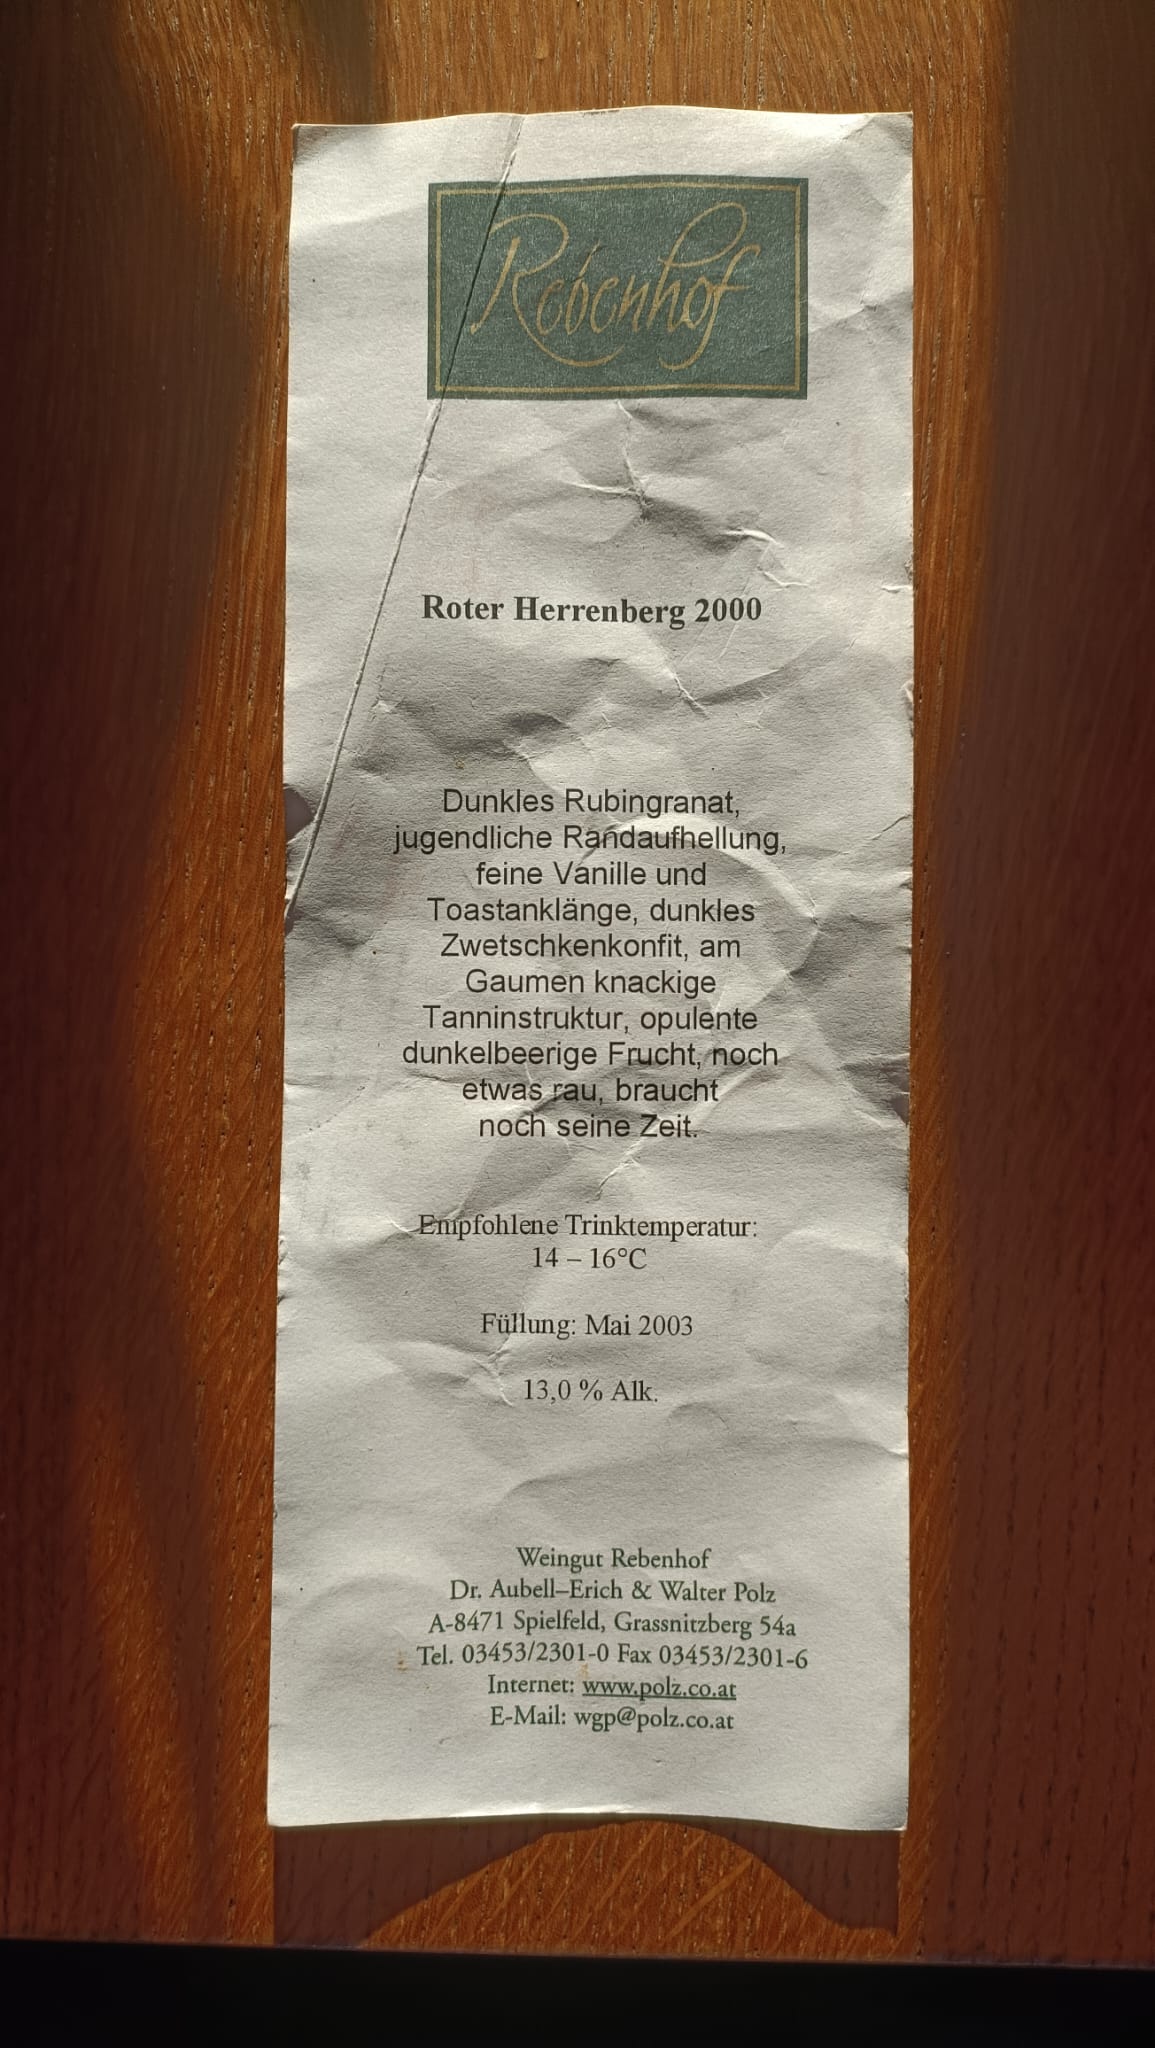 Rebenhof
Roter Herrenberg 2000
Dunkles Rubingranat,
jugendliche Randaufhellung,
feine Vanille und
Toastanklänge, dunkles
Zwetschkenkonfit, am
Gaumen knackige
Tanninstruktur, opulente
dunkelbeerige Frucht, noch
etwas rau, braucht
noch seine Zeit.
Empfohlene Trinktemperatur:
14 – 16°C
Füllung: Mai 2003
13,0 % Alk.
Weingut Rebenhof
Dr. Aubell–Erich & Walter Polz
A-8471 Spielfeld, Grassnitzberg 54a
Tel. 03453/2301-0 Fax 03453/2301-6
Internet: www.polz.co.at
E-Mail: wgp@polz.co.at